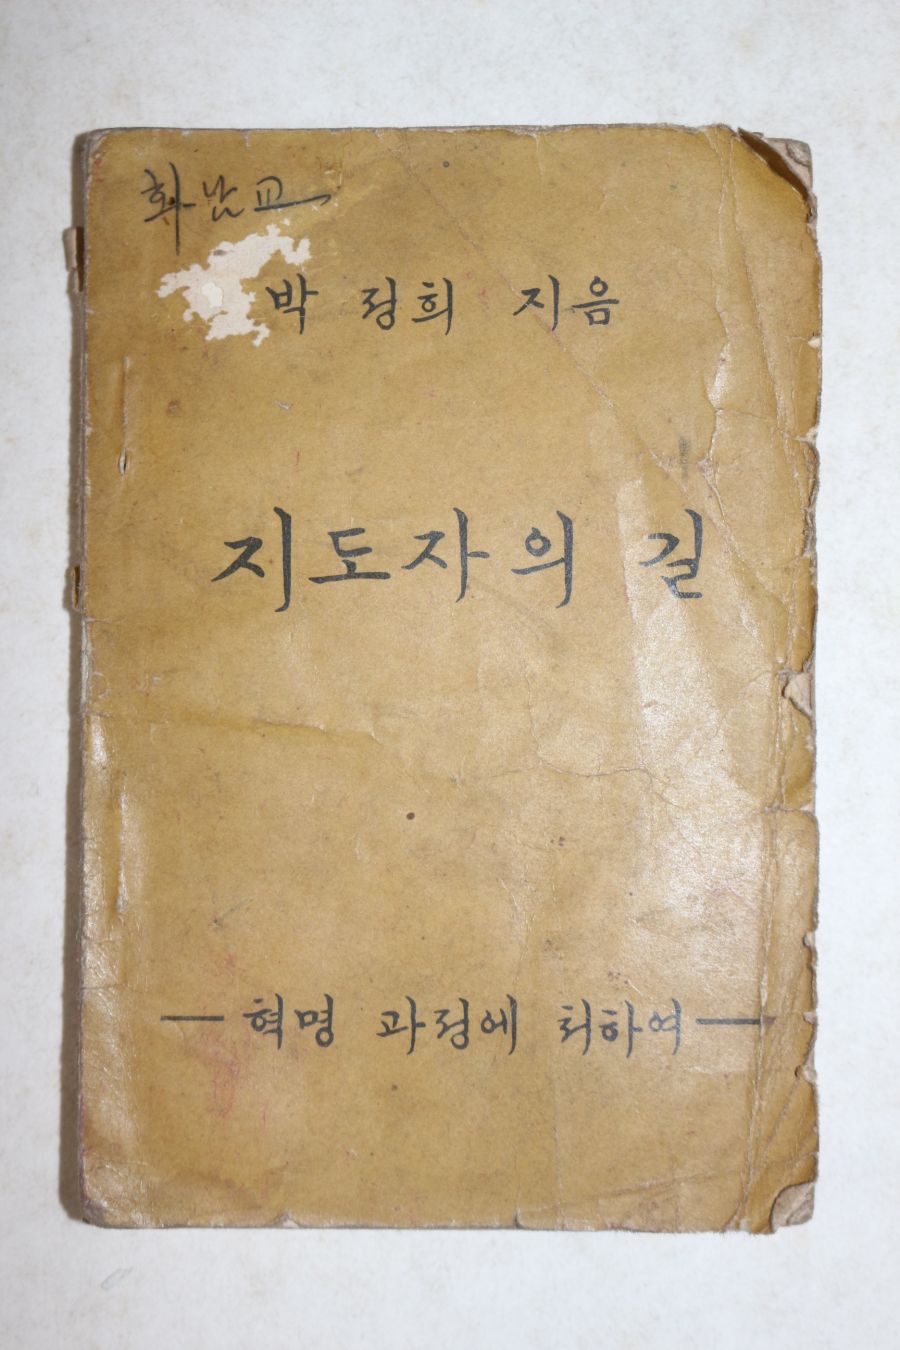 화남교
박 정희 지음
지도자의 길
— 혁명 과정에 처하여 —